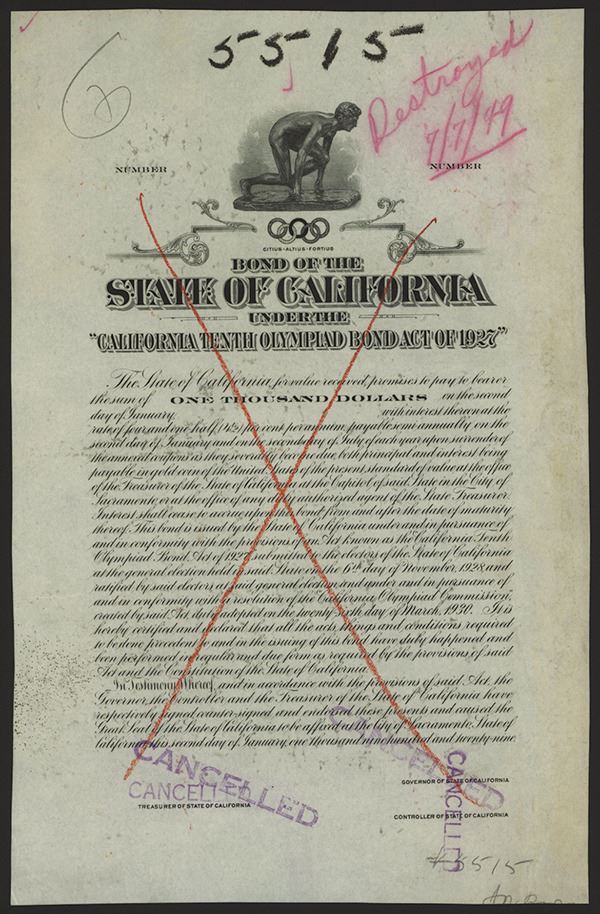 5515
Destroyed
7/7/49
NUMBER
NUMBER
CITIUS-ALTIUS-FORTIUS
BOND OF THE
STATE OF CALIFORNIA
UNDER THE
"CALIFORNIA TENTH OLYMPIAD BOND ACT OF 1927"
The State of California, for value received, promises to pay to bearer
the sum of ONE THOUSAND DOLLARS on the second
day of January, with interest thereon at the
rate of four and one half (4½) per cent per annum, payable semi-annually on the
second day of January and on the second day of July of each year upon surrender of
the annexed coupons as they severally become due, both principal and interest being
payable in gold coin of the United States of the present standard of value at the office
of the Treasurer of the State of California at the Capitol of said State in the City of
Sacramento, or at the office of any duly authorized agent of the State Treasurer.
Interest shall cease to accrue upon this bond from and after the date of maturity
thereof. This bond is issued by the State of California under and in pursuance of
and in conformity with the provisions of an Act known as the California Tenth
Olympiad Bond Act of 1927 submitted to the electors of the State of California
at the general election held in said State on the 6th day of November, 1928, and
ratified by said electors at said general election and under and in pursuance of
and in conformity with a resolution of the "California Olympiad Commission",
created by said Act, duly adopted on the twenty-sixth day of March, 1930. It is
hereby certified and declared that all the acts, things and conditions required
to be done precedent to and in the issuing of this bond have duly happened and
been performed in regular and due form as required by the provisions of said
Act and the Constitution of the State of California.
In Testimony Whereof, and in accordance with the provisions of said Act, the
Governor, the Controller and the Treasurer of the State of California have
respectively signed, counter-signed and endorsed these presents and caused the
Great Seal of the State of California to be affixed at the city of Sacramento, State of
California this second day of January, one thousand nine hundred and twenty-nine.
CANCELLED
CANCELLED
CANCELLED
CANCELLED
GOVERNOR OF STATE OF CALIFORNIA
TREASURER OF STATE OF CALIFORNIA
CONTROLLER OF STATE OF CALIFORNIA
5515